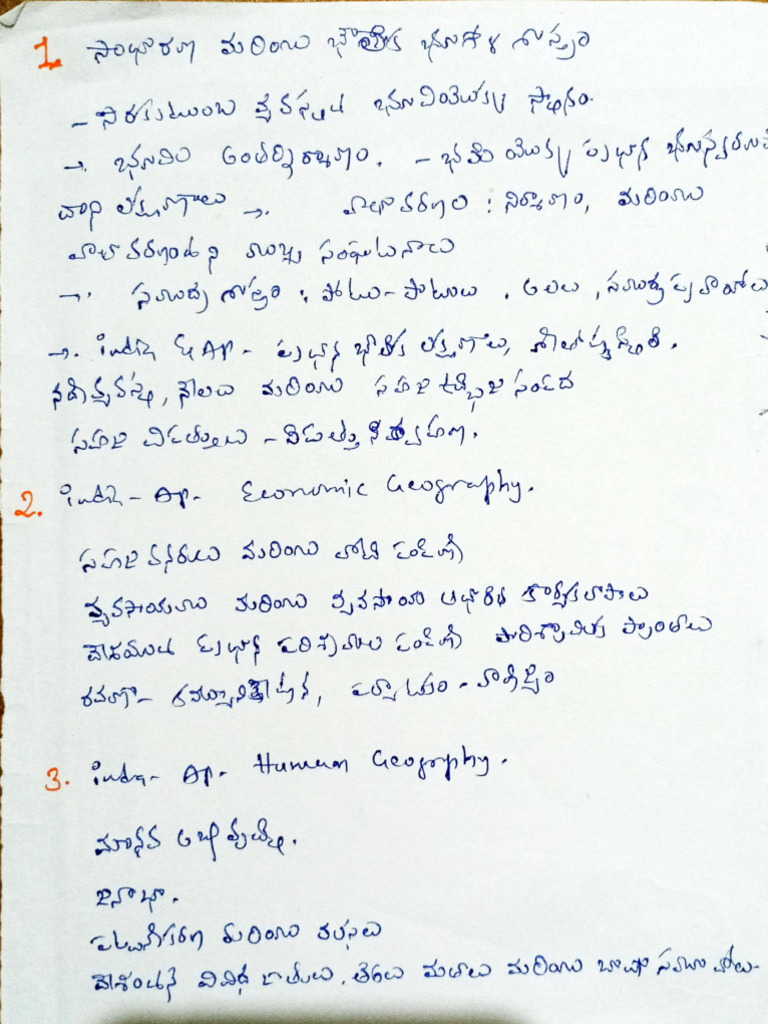 1. సాధారణ మరియు భౌతిక భూగోళ శాస్త్రం
- సౌరకుటుంబ వ్యవస్థ భూమియొక్క స్థానం.
→ భూమి అంతర్నిర్మాణం. - భూమి యొక్క ప్రధాన భూస్వరూప
వాని లక్షణాలు →. వాతావరణం : నిర్మాణం, మరియు
వాతావరణంలోని ముఖ్య సంఘటనలు
→. సముద్ర శాస్త్రం : పోటు-పాటులు, అలలు, సముద్ర ప్రవాహాలు
→. India & AP - ప్రధాన భౌతిక లక్షణాలు, శీతోష్ణస్థితి.
నదీవ్యవస్థ, నేలలు మరియు సహజ ఉద్భిజ సంపద
సహజ విపత్తులు - విపత్తు నిర్వహణ.
2. India - AP - Economic Geography.
సహజ వనరులు మరియు వాటి పంపిణీ
వ్యవసాయము మరియు వ్యవసాయ ఆధారిత కార్యకలాపాలు
దేశములో ప్రధాన పరిశ్రమల పంపిణీ పారిశ్రామిక ప్రాంతాలు
రవాణా - కమ్యూనికేషన్, పర్యాటకం - వాణిజ్యం
3. India - AP - Human Geography.
మానవ అభివృద్ధి.
జనాభా.
పట్టణీకరణ మరియు వలసలు
దేశంలోని వివిధ జాతులు, తెగలు మతాలు మరియు భాషా సమూహాలు